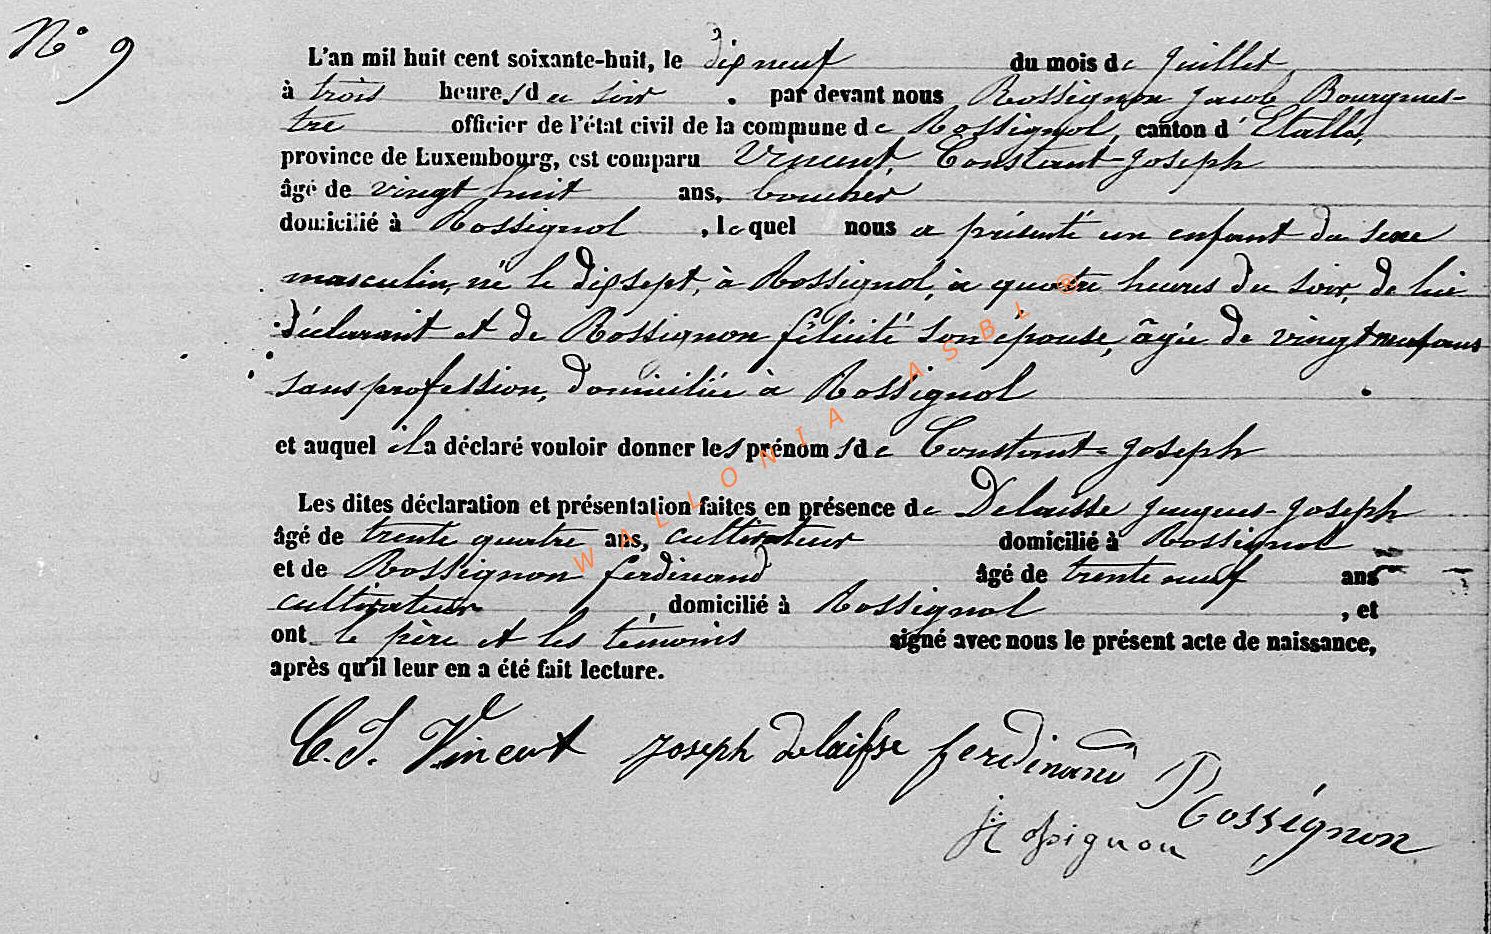 N° 9
L'an mil huit cent soixante-huit, le dix neuf du mois de Juillet,
à trois heures du soir . par devant nous Rossignon Jacob Bourgmes-
tre officier de l'état civil de la commune de Rossignol, canton d'Etalle,
province de Luxembourg, est comparu Vincent, Constant-Joseph
âgé de vingt huit ans, boucher
domicilié à Rossignol , lequel nous a présenté un enfant du sexe
masculin, né le dix sept, à Rossignol, à quatre heures du soir, de lui
déclarant et de Rossignon félicité son épouse, âgée de vingt neuf ans
sans profession, domiciliée à Rossignol
et auquel il a déclaré vouloir donner les prénoms de Constant-Joseph
Les dites déclaration et présentation faites en présence de Delaisse Jacques-Joseph
âgé de trente quatre ans, cultivateur domicilié à Rossignol
et de Rossignon ferdinand âgé de trente neuf ans
cultivateur , domicilié à Rossignol , et
ont le père et les témoins signé avec nous le présent acte de naissance,
après qu'il leur en a été fait lecture.
C. J. Vincent Joseph delaisse ferdinand Rossignon
J Rossignon
WALLONIA ASBL ®